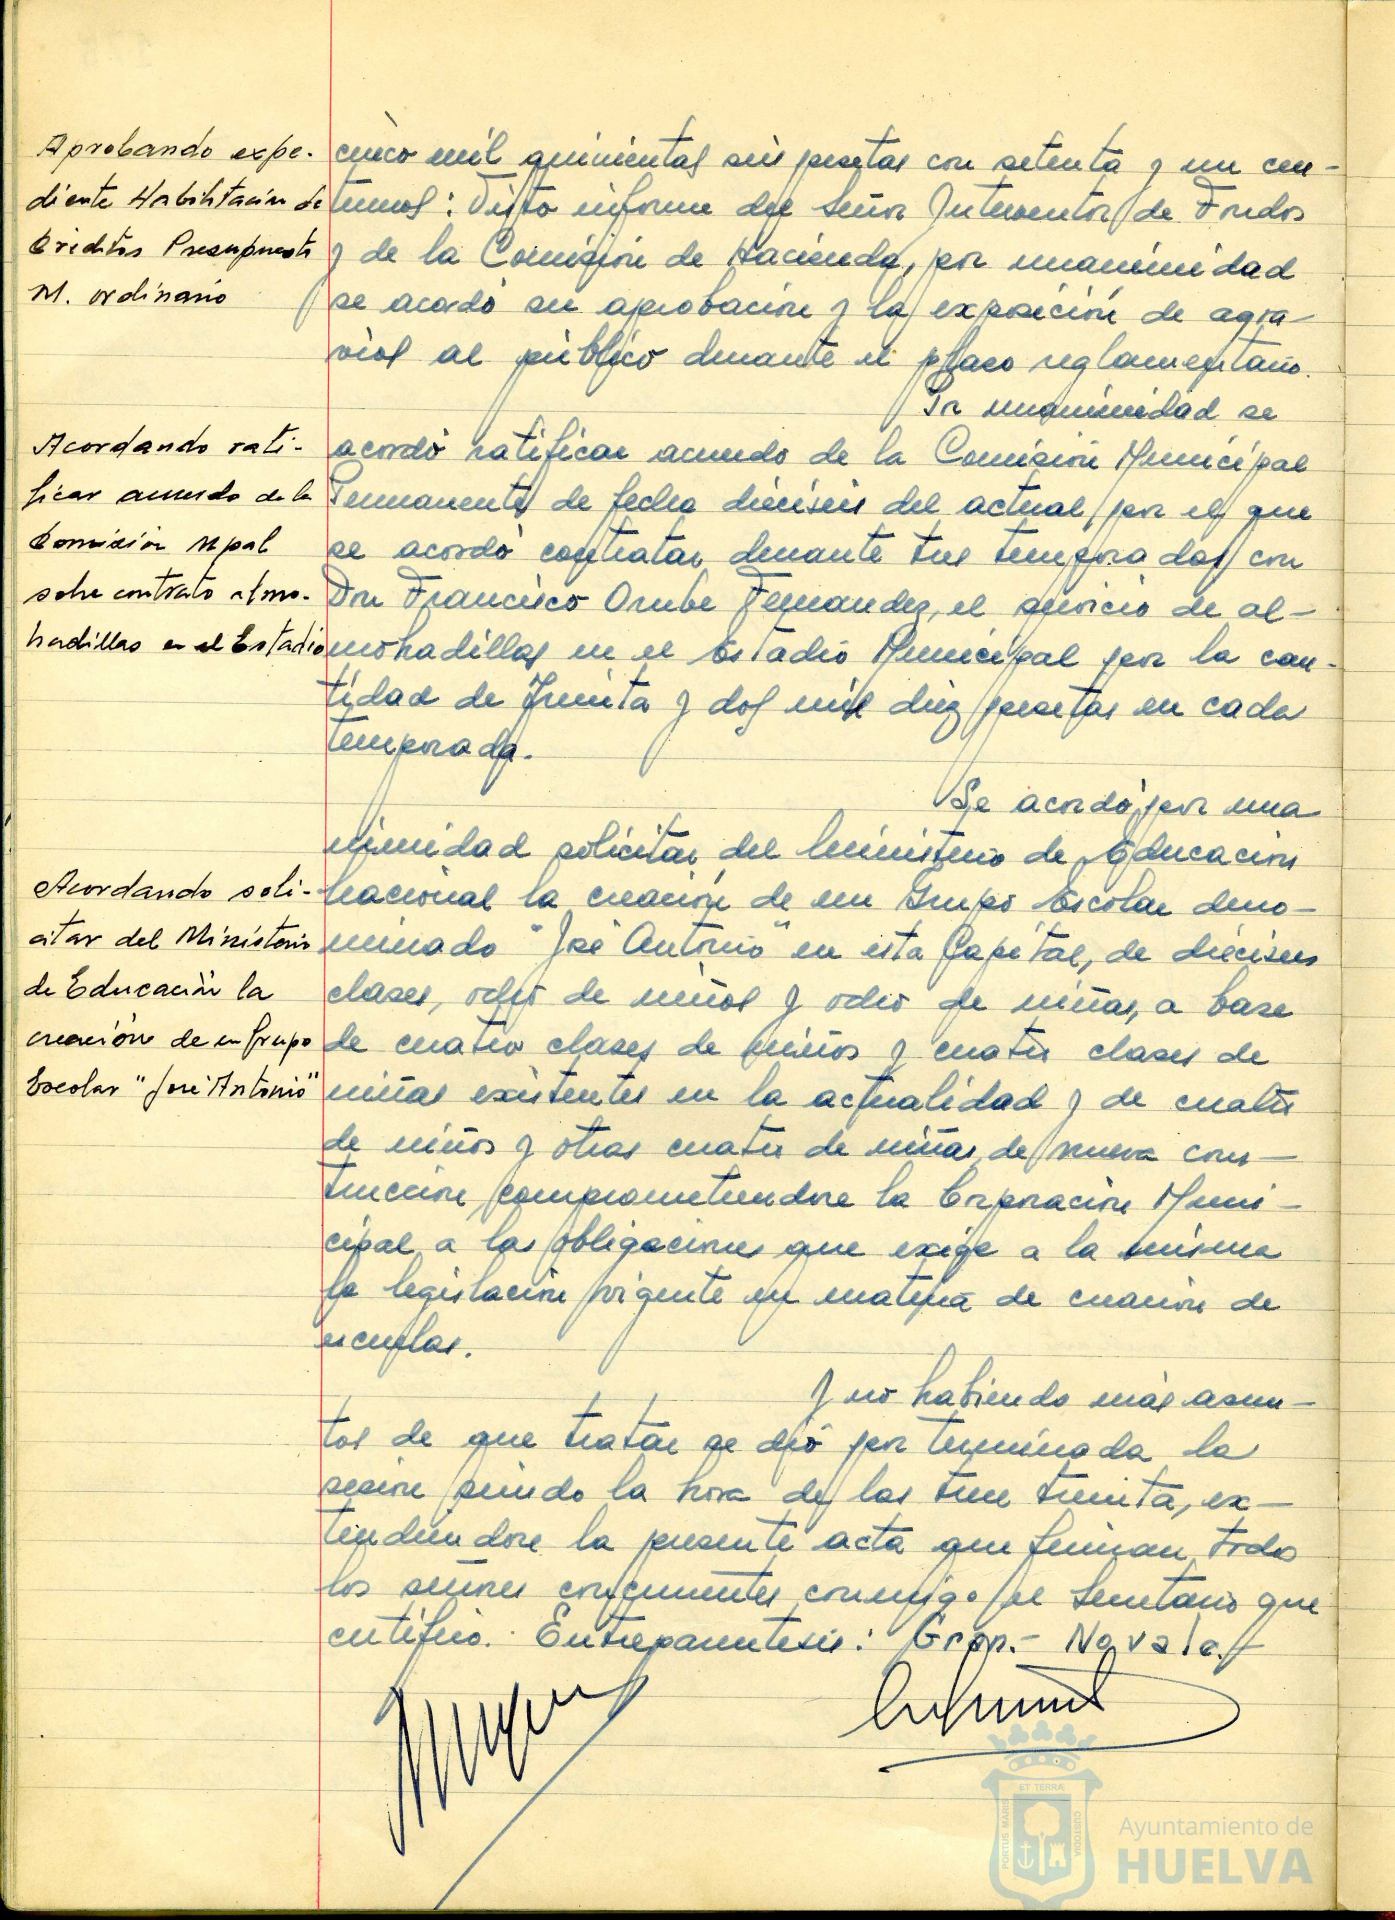 Aprobando expe-
diente Habilitación de
Créditos Presupuesto
M. ordinario
cinco mil quinientas seis pesetas con setenta y un cen-
timos: Visto informe del Señor Interventor de Fondos
y de la Comisión de Hacienda, por unanimidad
se acordó su aprobación y la exposición de agra-
vios al público durante el plazo reglamentario.
Por unanimidad se
Acordando rati-
ficar acuerdo de la
Comision Mpal
sobre contrato almo-
hadillas en el Estadio
acordó ratificar acuerdo de la Comisión Municipal
Permanente de fecha dieciseis del actual, por el que
se acordó contratar durante tres temporadas con
Don Francisco Orube Fernandez, el servicio de al-
mohadillas en el Estadio Municipal por la can-
tidad de treinta y dos mil diez pesetas en cada
temporada.
Se acordó por una
nimidad solicitar del Ministerio de Educación
Acordando soli-
citar del Ministerio
de Educación la
creación de un Grupo
Escolar "José Antonio"
Nacional la creación de un Grupo Escolar deno-
minado "José Antonio" en esta Capital, de dieciseis
clases, ocho de niños y ocho de niñas, a base
de cuatro clases de niños y cuatro clases de
niñas existentes en la actualidad y de cuatro
de niños y otras cuatro de niñas, de nueva cons-
trucción, comprometiendose la Corporación Muni-
cipal a las obligaciones que exige a la misma
la legislación vigente en materia de creación de
escuelas.
Y no habiendo más asun-
tos de que tratar se dió por terminada la
sesión siendo la hora de las trece treinta, ex-
tendiendose la presente acta que firman todos
los señores concurrentes conmigo el Secretario que
certifico. Entreparentesis: Gran.- Navale.-
ET TERRÆ
PORTUS MARIS
CUSTODIA
Ayuntamiento de
HUELVA